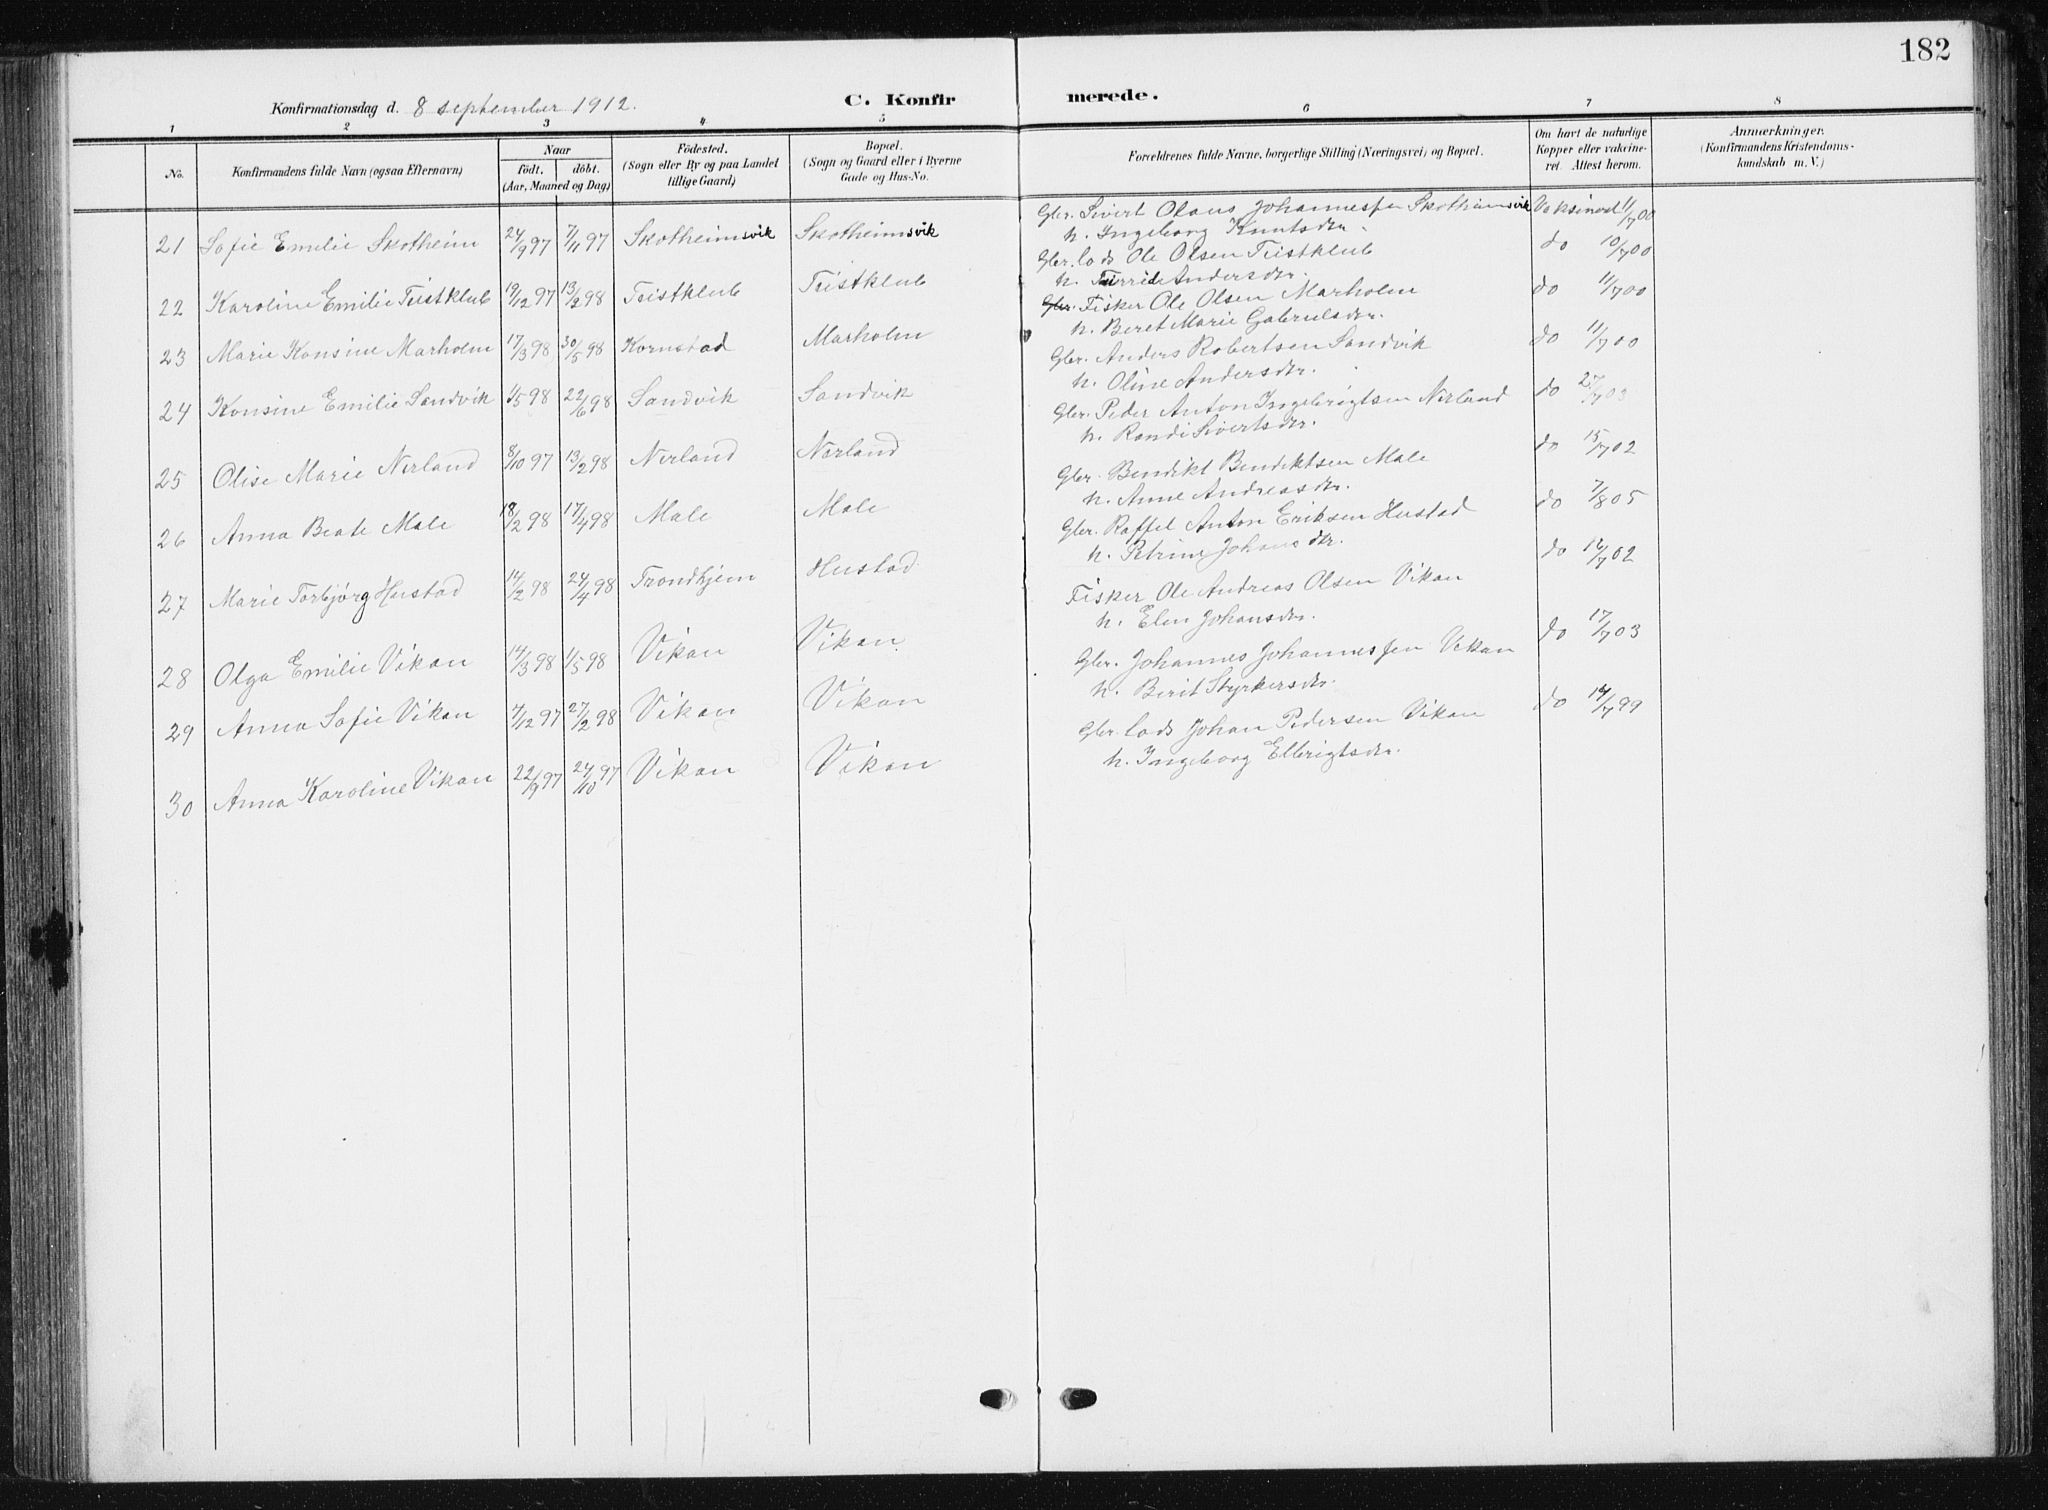 182
Konfirmationsdag d. 8 september 1912. C. Konfir merede.
1 2 3 4 5 6 7 8
No. Konfirmandens fulde Navn (ogsaa Efternavn) Naar födt. döbt. (Aar, Maaned og Dag) Födested. (Sogn eller By og paa Landet tillige Gaard) Bopæl. (Sogn og Gaard eller i Byerne Gade og Hus-No. Forældrenes fulde Navne, borgerlige Stilling (Næringsvei) og Bopæl. Om havt de naturlige Kopper eller vaksineret. Attest herom. Anmærkninger. (Konfirmandens Kristendomskundskab m. V.)
21 Sofie Emilie Skotheim 24/9 97 7/11 97 Skotheimsvik Skotheimsvik Gbr. Sivert Olaus Johannessen Skotheimsvik Vaksinert 11/7 00
h. Ingeborg Knutsdtr.
22 Karoline Emilie Teistklub 19/12 97 13/2 98 Teistklub Teistklub Gbr. lods Ole Olsen Teistklub do 10/7 00
h. Andersdtr.
23 Marie Konsine Marholm 17/3 98 30/5 98 Kornstad Marholm Gbr. Fisker Ole Olsen Marholm do 11/7 00
h. Beret Marie Gabrielsdtr.
24 Konsine Emilie Sandvik 1/5 98 22/6 98 Sandvik Sandvik Gbr. Anders Robertsen Sandvik do 11/7 00
h. Oline Andersdtr.
25 Olise Marie Nerland 8/10 97 13/2 98 Nerland Nerland Gbr. Peder Anton Ingebrigtsen Nerland do 27/7 03
h. Randi Sivertsdtr.
26 Anna Beate Male 18/2 98 17/4 98 Male Male Gbr. Bendikt Bendiktsen Male do 15/7 02
h. Anne Andreasdtr.
27 Marie Torbjørg Hustad 14/2 98 24/4 98 Trondhjem Hustad Gbr. Raffel Anton Eriksen Hustad do 7/8 05
h. Petrine Johansdtr.
28 Olga Emilie Vikan 14/3 98 1/5 98 Vikan Vikan. Fisker Ole Andreas Olsen Vikan do 16/7 02
h. Elen Johansdtr.
29 Anna Sofie Vikan 7/12 97 27/2 98 Vikan Vikan Gbr. Johannes Johannessen Vikan do 17/7 03
h. Berit Styrkersdtr.
30 Anna Karoline Vikan 22/9 97 24/10 97 Vikan Vikan Gbr. lods Johan Pedersen Vikan do 14/7 99
h. Ingeborg Ellerigtsdtr.